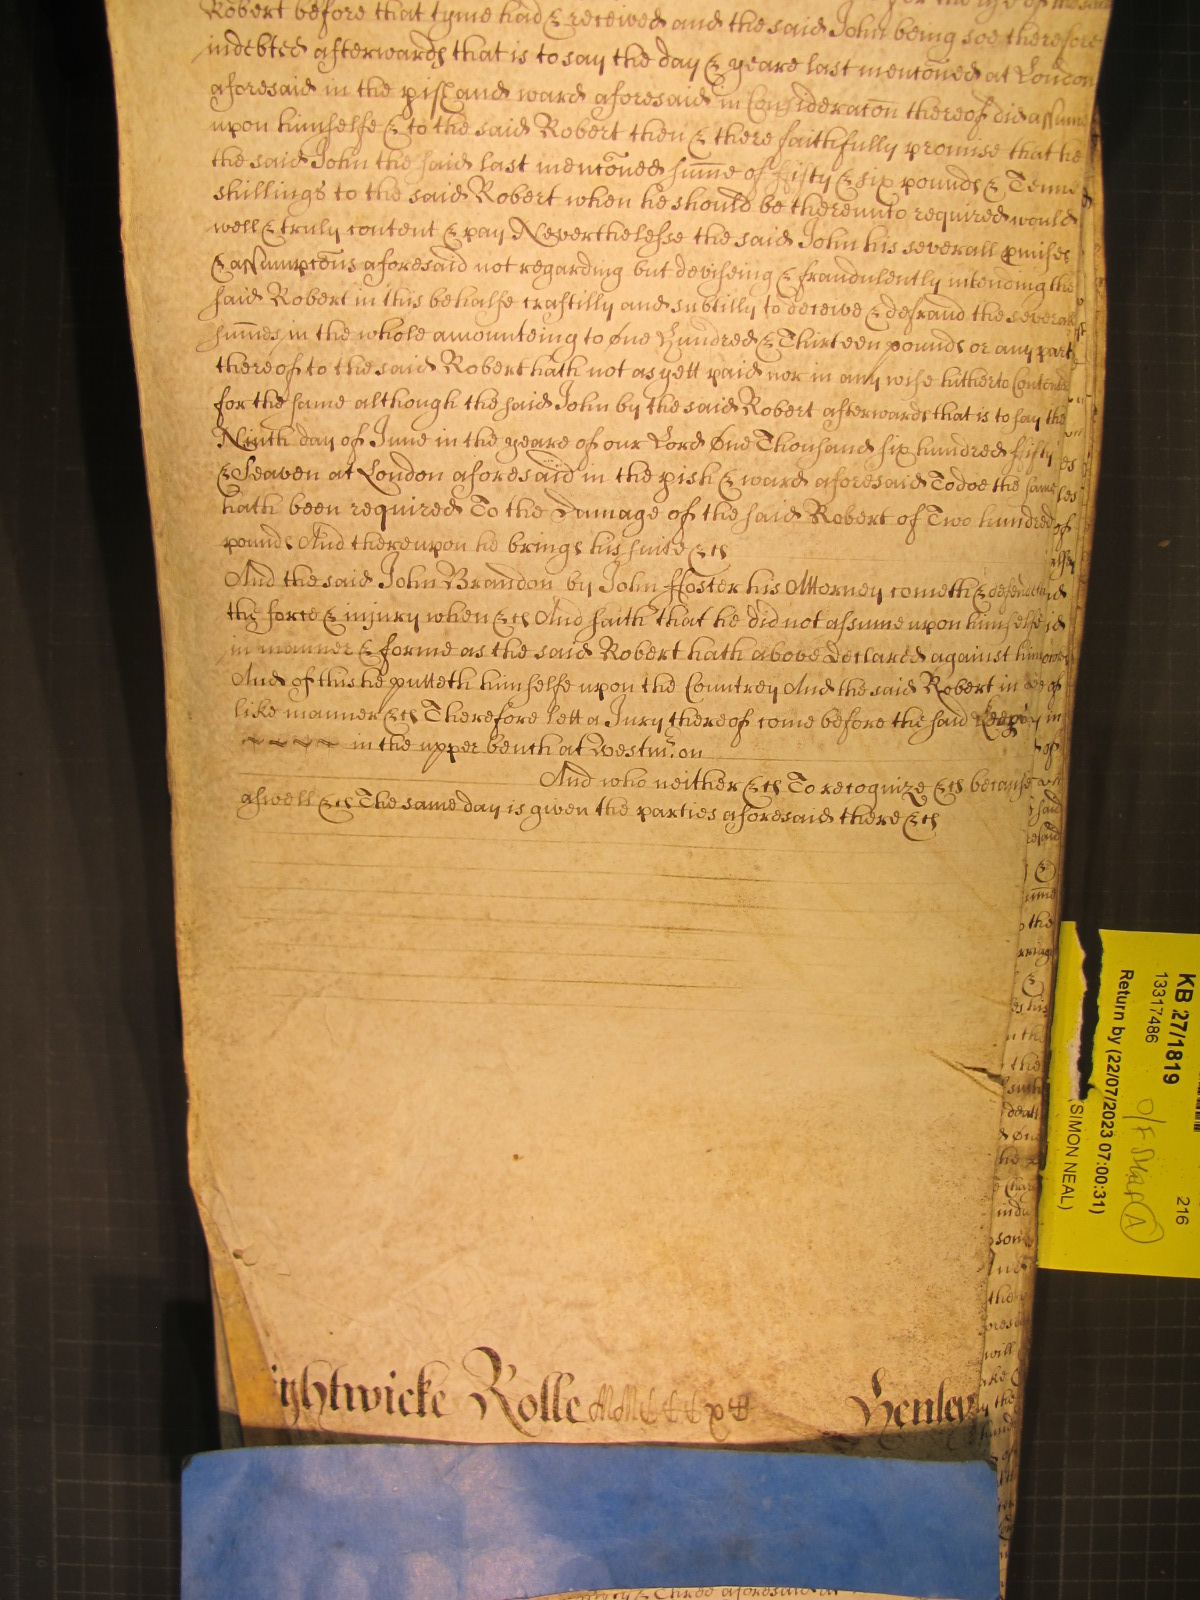 Robert before that tyme had & receiveed and the said John being soe therefore
indebted afterwards that is to say the day & yeare last mentioned at London
aforesaid in the pish and ward aforesaid in Consideracon thereof did assume
upon himselfe & to the said Robert then & there faithfully promise that he
the said John the said last menconed sume of fifty & six pounds & Tenne
shillings to the said Robert when he should be thereunto required would
well & truly content & pay Neverthelesse the said John his severall pmises
& assumpcons aforesaid not regarding but deviseing & fraudulently intending the
said Robert in this behalfe craftilly and subtilly to deceive & defraud the severall
sumes in the whole amounteing to One Hundred & Thirteen pounds or any part
thereof to the said Robert hath not as yett paid nor in any wise hitherto Contented
for the same although the said John by the said Robert afterwards that is to say the
Ninth day of June in the yeare of our Lord One Thousand six hundred fifty
& Seaven at London aforesaid in the pish & ward aforesaid To doe the same
hath been required To the Damage of the said Robert of Two hundred
pounds And thereupon he brings his suite &c
And the said John Brandon by John Ffoster his Attorney cometh & defendeth
the force & injury when &c And saith that he did not assume upon himselfe
in manner & forme as the said Robert hath above declared against him
And of this he putteth himselfe upon the Countrey And the said Robert in
like manner &c Therefore lett a Jury thereof come before the said
in the upper bench at Westmr on
And who neither &c To recognize &c because
aswell &c The same day is given the parties aforesaid there &c
ightwicke Rolle MMCCCxv Henley
KB 27/1819
13317486
216
Return by (22/07/2023 07:00:31)
SIMON NEAL)